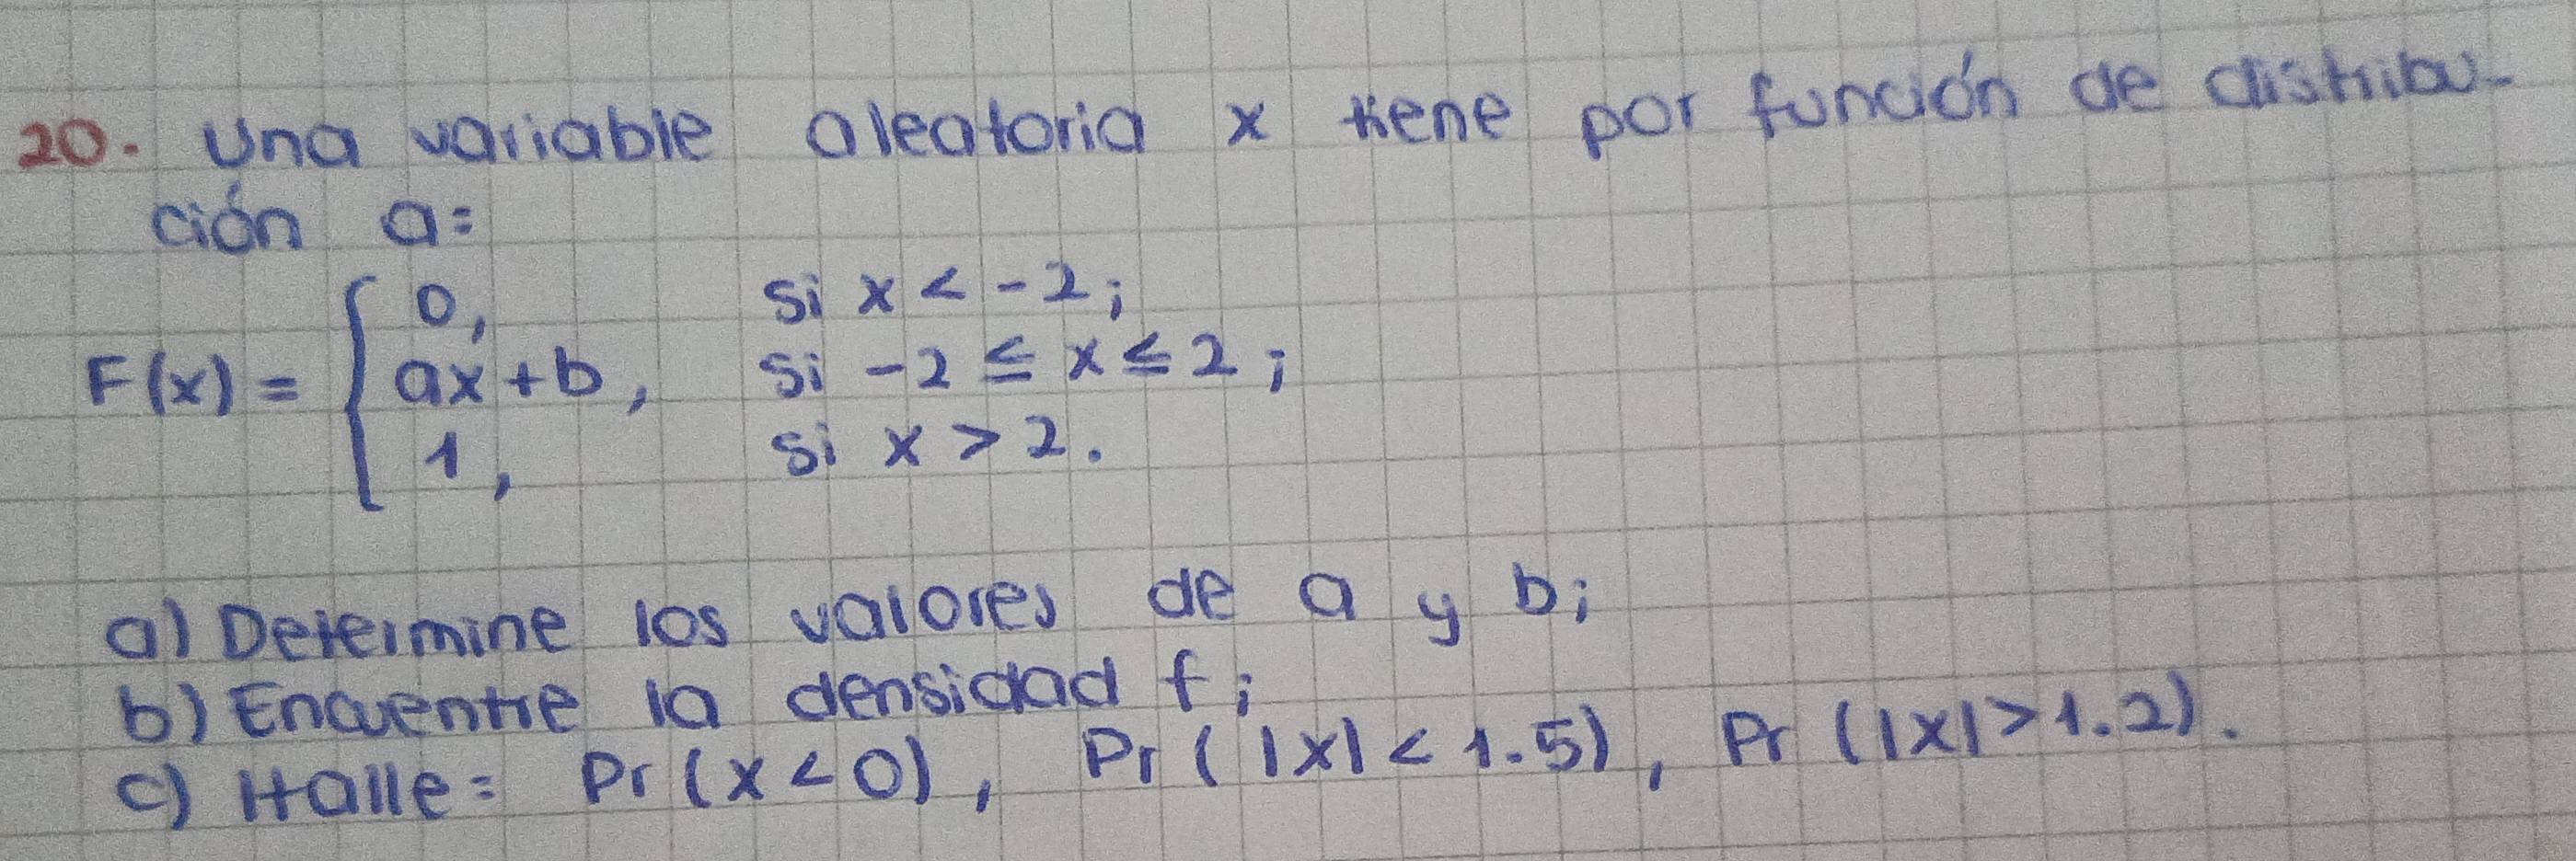 20. Una variable aleatoria x tiene por función de distribu-
ción a:
0, si x < -2;
F(x) = { ax+b, si -2 ≤ x ≤ 2;
1, si x > 2.
a) Determine los valores de a y b;
b) Encuentre la densidad f;
c) Halle: Pr(x<0), Pr(|x|<1.5), Pr(|x|>1.2).